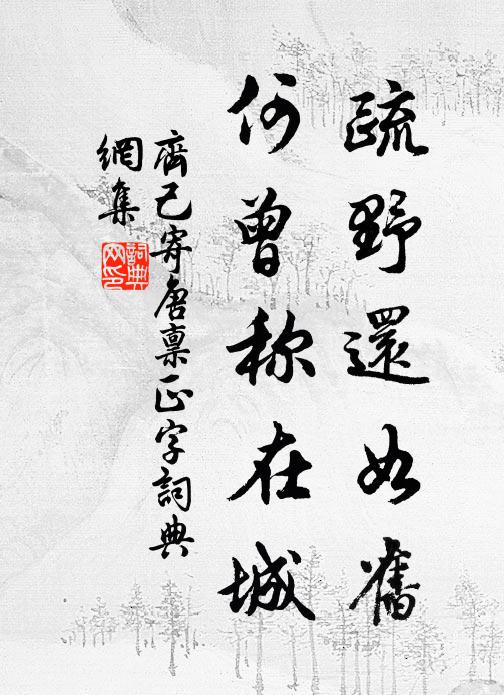 疏野還如舊
何曾稱在城
齊己寄唐禀正字詞典
網集
詞典網印